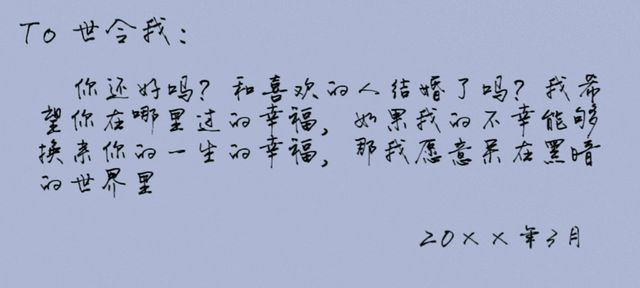 To 世令我：
你还好吗？和喜欢的人结婚了吗？我希
望你在哪里过的幸福，如果我的不幸能够
换来你的一生的幸福，那我愿意呆在黑暗
的世界里
20××年3月